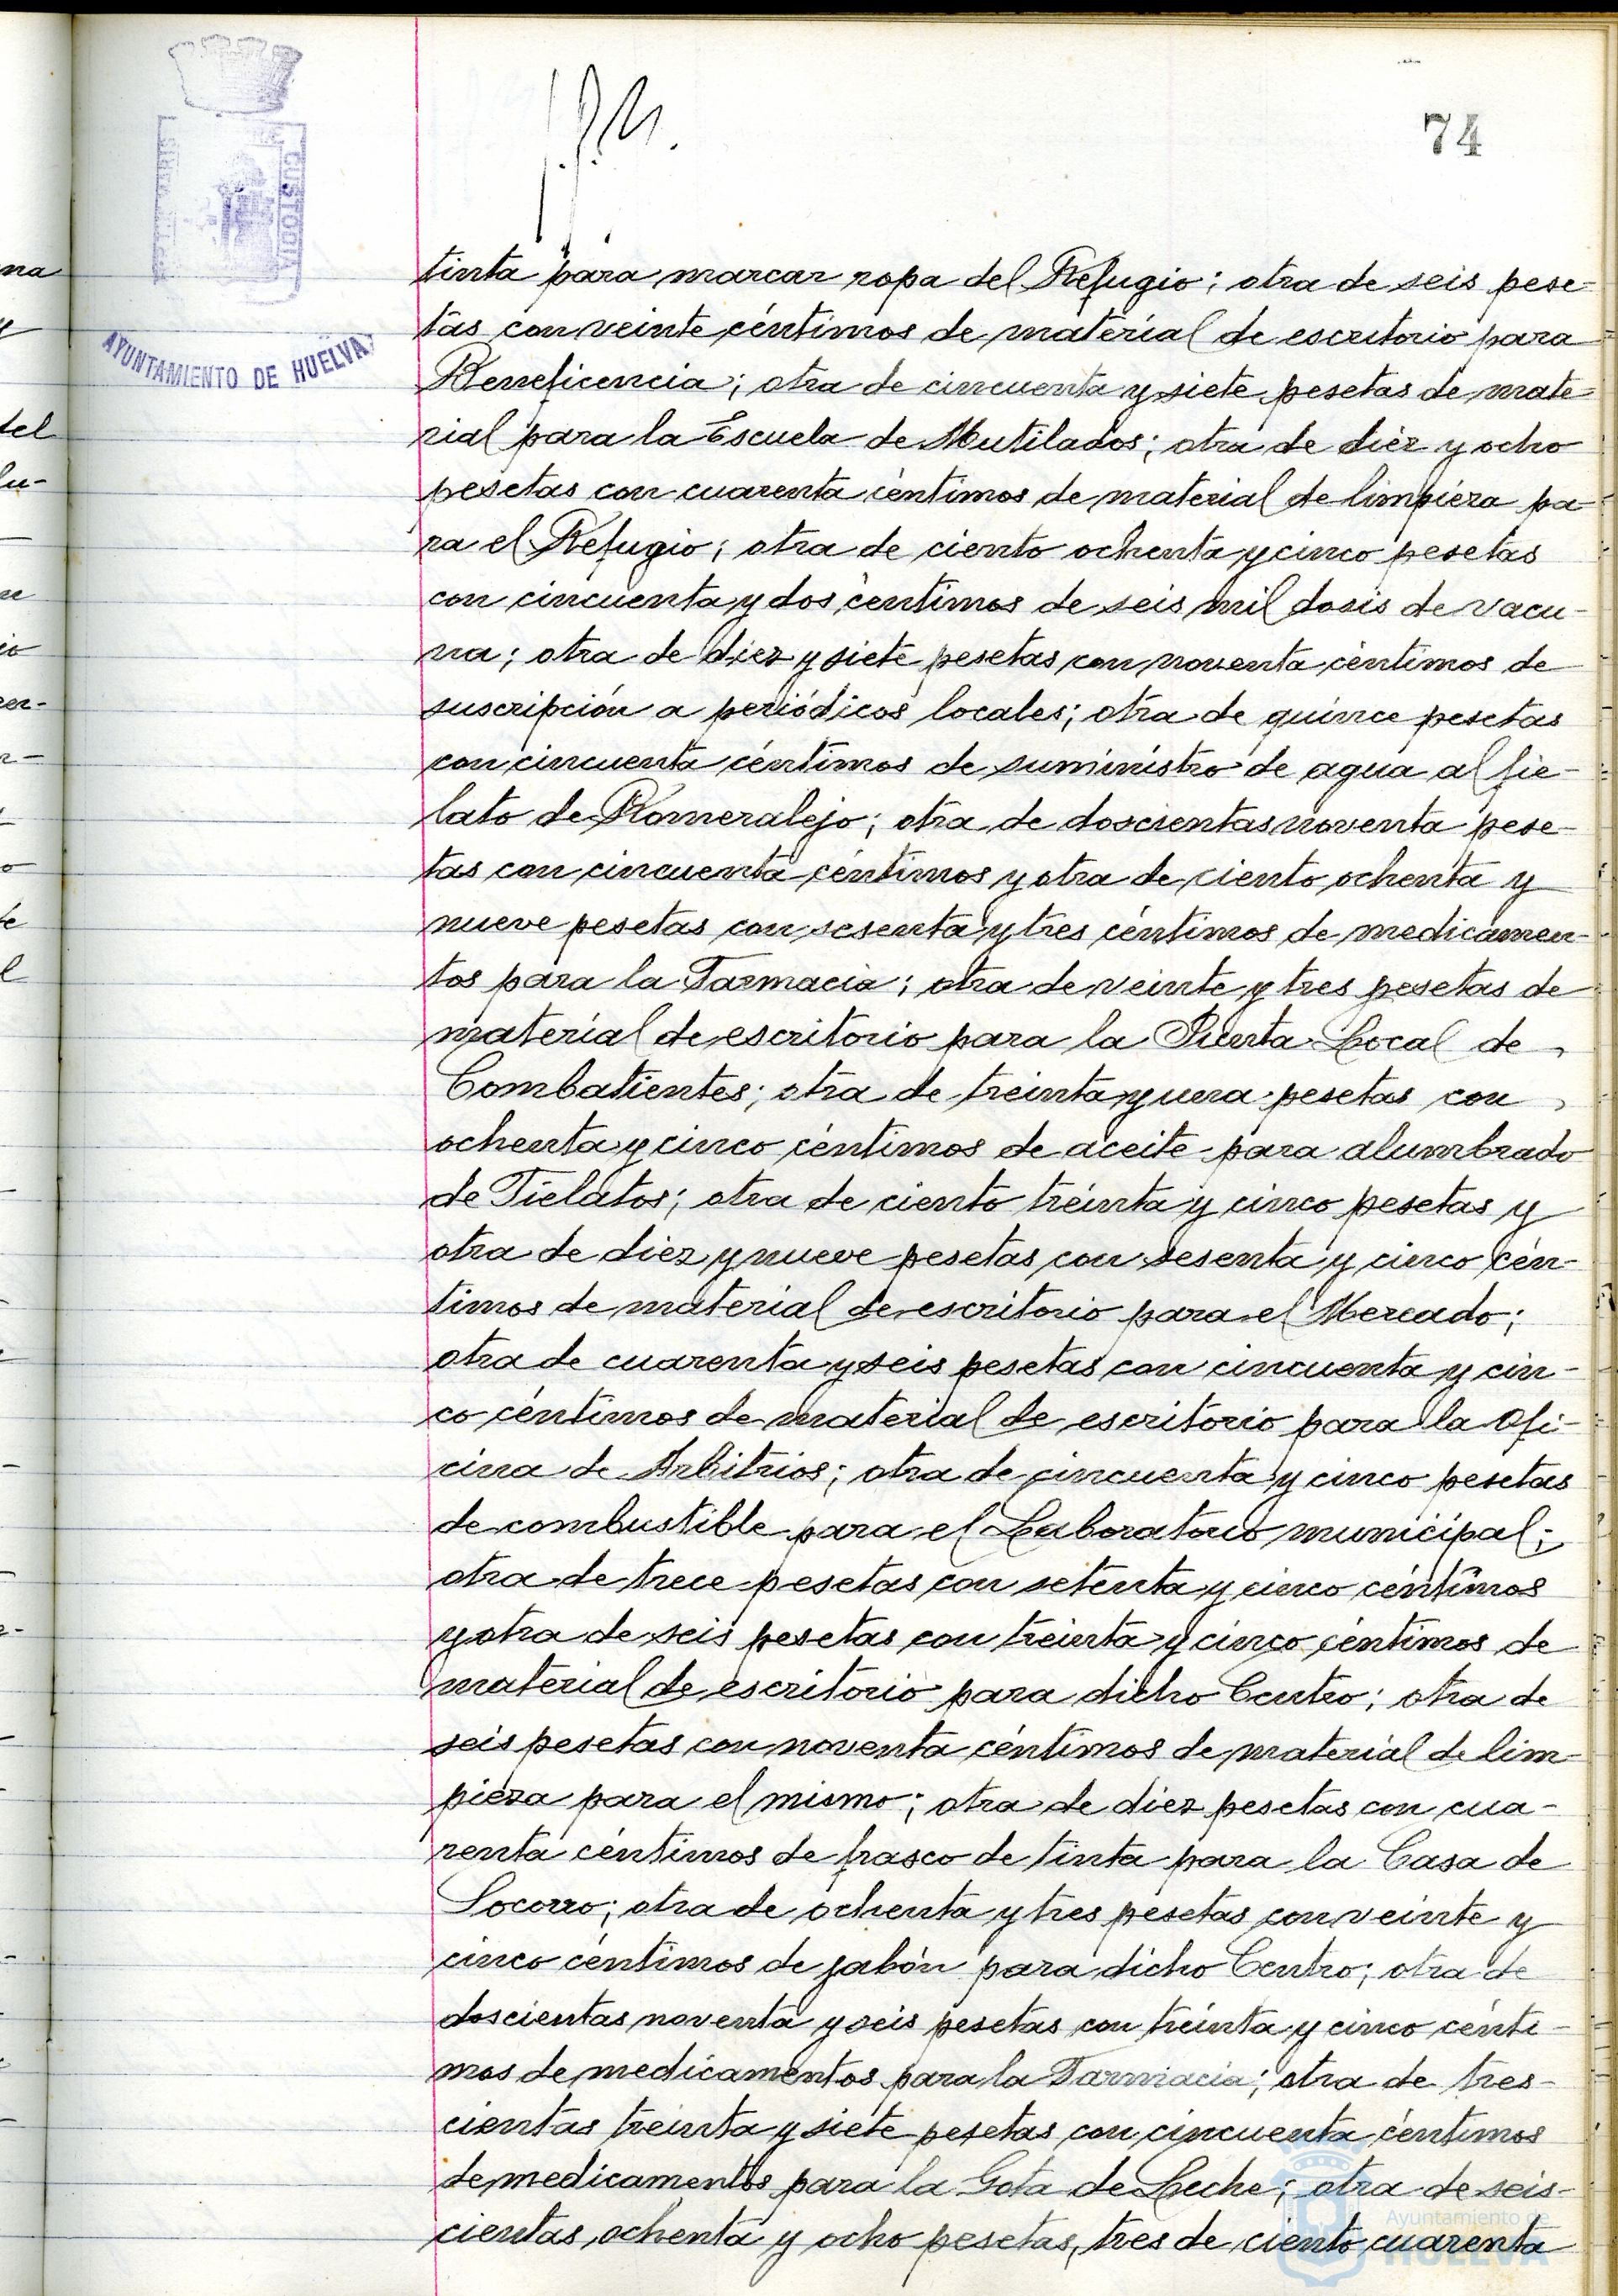 74
CUSTODIA
AYUNTAMIENTO DE HUELVA
tinta para marcar ropa del Refugio; otra de seis pese-
tas con veinte céntimos de material de escritorio para
Beneficencia; otra de cincuenta y siete pesetas de mate-
rial para la Escuela de Mutilados; otra de diez y ocho
pesetas con cuarenta céntimos de material de limpieza pa-
ra el Refugio; otra de ciento ochenta y cinco pesetas
con cincuenta y dos céntimos de seis mil dosis de vacu-
na; otra de diez y siete pesetas con noventa céntimos de
suscripción a periódicos locales; otra de quince pesetas
con cincuenta céntimos de suministro de agua al fie-
lato de Romeralejo; otra de doscientas noventa pese-
tas con cincuenta céntimos y otra de ciento ochenta y
nueve pesetas con sesenta y tres céntimos de medicamen-
tos para la Farmacia; otra de veinte y tres pesetas de
material de escritorio para la Junta Local de
Combatientes; otra de treinta y una pesetas con
ochenta y cinco céntimos de aceite para alumbrado
de Fielatos; otra de ciento treinta y cinco pesetas y
otra de diez y nueve pesetas con sesenta y cinco cén-
timos de material de escritorio para el Mercado;
otra de cuarenta y seis pesetas con cincuenta y cin-
co céntimos de material de escritorio para la Ofi-
cina de Arbitrios; otra de cincuenta y cinco pesetas
de combustible para el Laboratorio municipal;
otra de trece pesetas con setenta y cinco céntimos
y otra de seis pesetas con treinta y cinco céntimos de
material de escritorio para dicho Centro; otra de
seis pesetas con noventa céntimos de material de lim-
pieza para el mismo; otra de diez pesetas con cua-
renta céntimos de frasco de tinta para la Casa de
Socorro; otra de ochenta y tres pesetas con veinte y
cinco céntimos de jabón para dicho Centro; otra de
doscientas noventa y seis pesetas con treinta y cinco cénti-
mos de medicamentos para la Farmacia; otra de tres-
cientas treinta y siete pesetas con cincuenta céntimos
de medicamentos para la Gota de Leche; otra de seis-
cientas ochenta y ocho pesetas, tres de ciento cuarenta
Ayuntamiento de
HUELVA